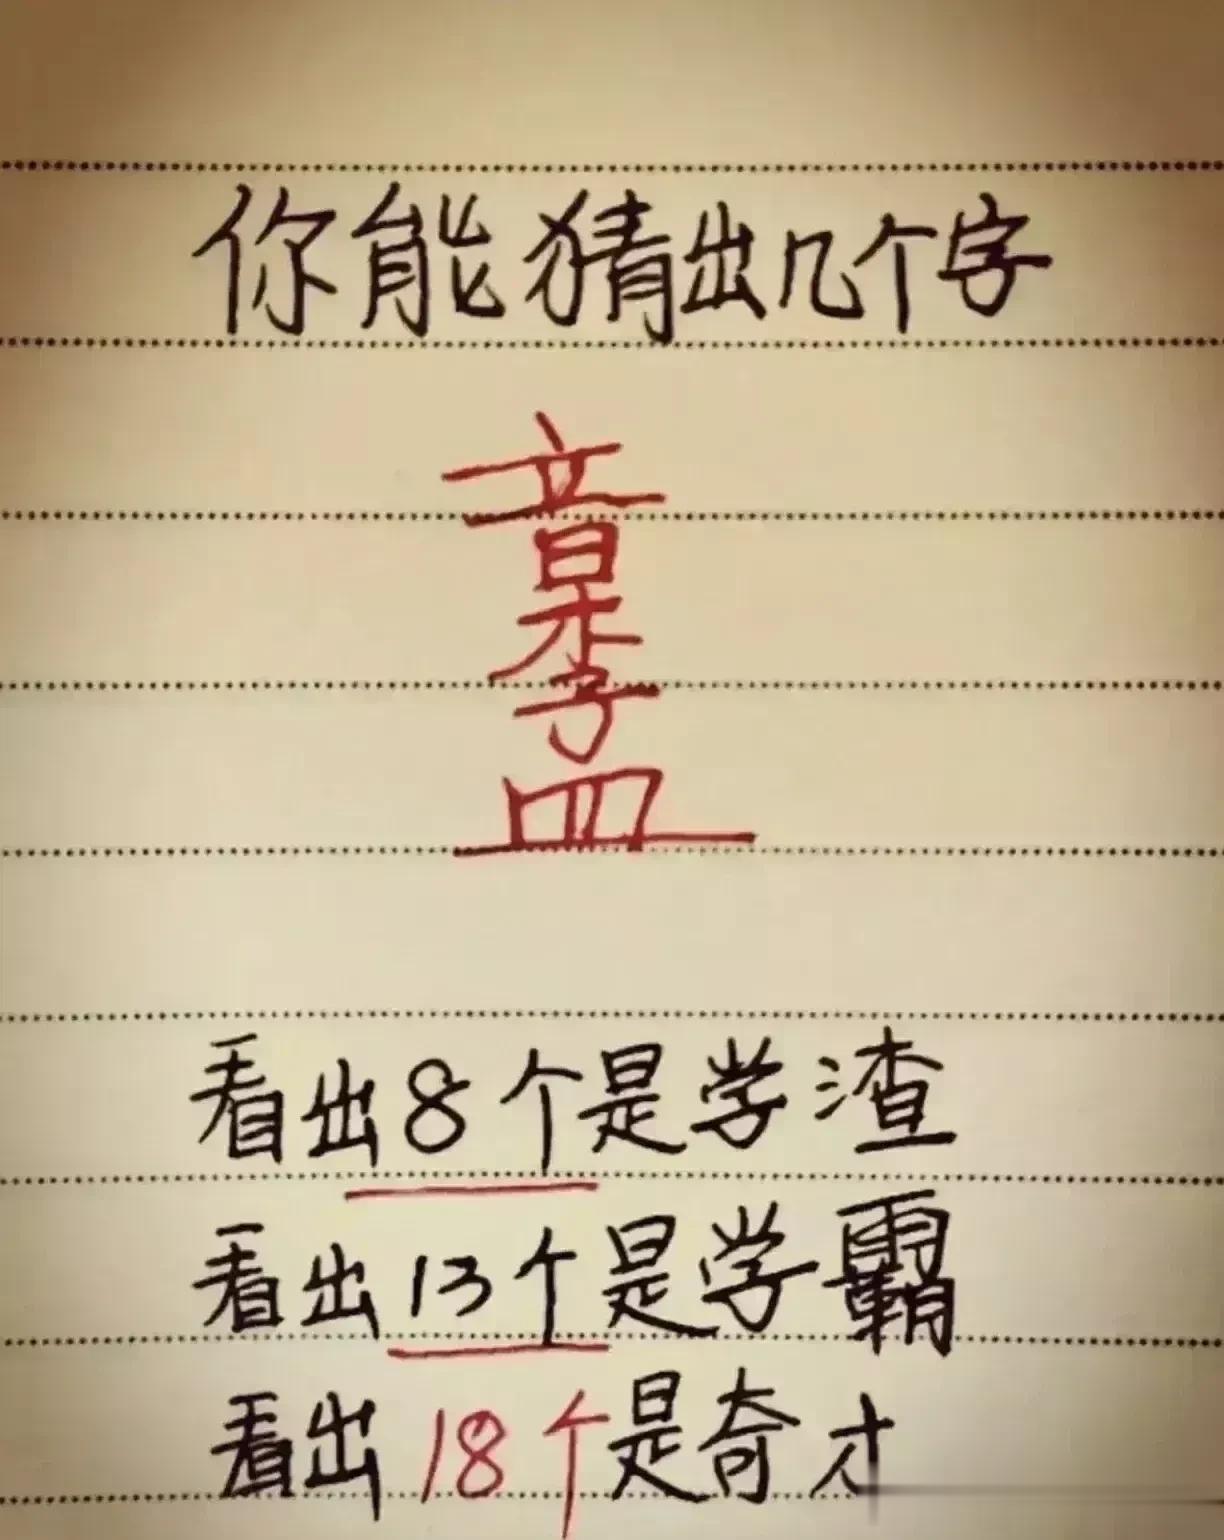 你能猜出几个字
立
日
木
子
皿
看出8个是学渣
看出13个是学霸
看出18个是奇才